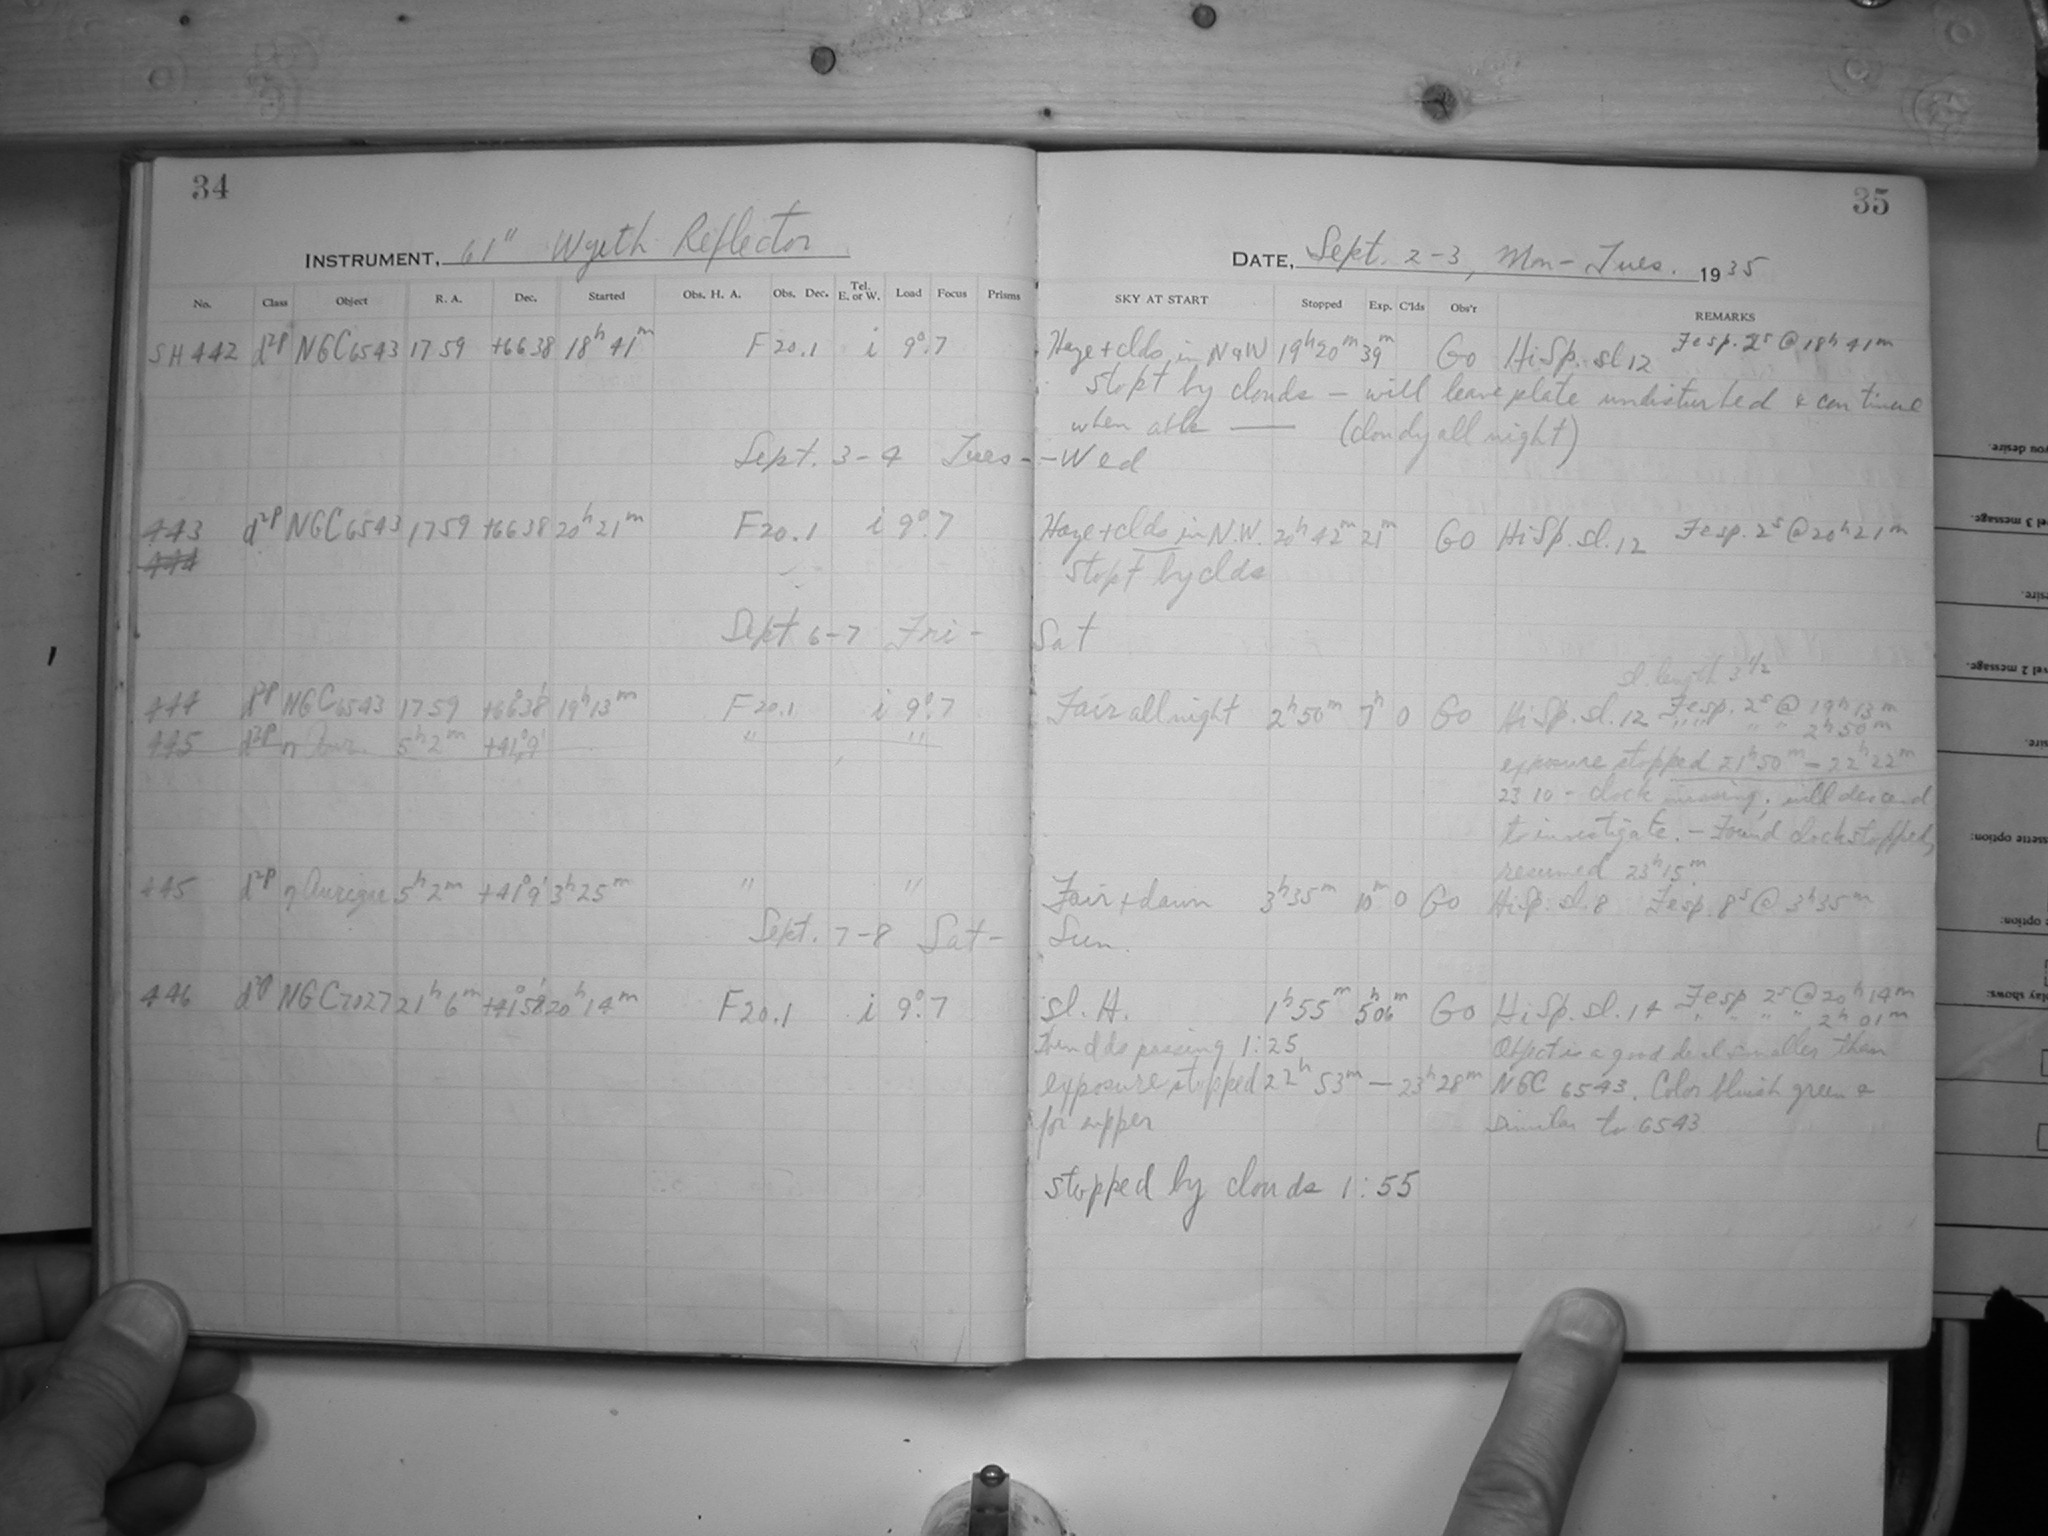 34
35
INSTRUMENT, 61" Wyeth Reflector
DATE, Sept. 2-3, Mon-Tues. 1935
No. Class Object R. A. Dec. Started Obs. H. A. Obs. Dec. Tel. E. or W. Load Focus Prisms SKY AT START Stopped Exp. C'lds Obs'r REMARKS
SH 442 d2p NGC 6543 17 59 +66 38 18h 41m F 20.1 i 9°.7 Haze + clds. in N & W 19h 20m 39m Go HiSp. sl 12 Fesp. 2s @ 18h 41m
stopt by clouds — will leave plate undisturbed & continue
when able —— (cloudy all night)
Sept. 3-4 Tues--Wed
443 d2p NGC 6543 17 59 +66 38 20h 21m F 20.1 i 9°.7 Haze + clds in N.W. 20h 42m 21m Go HiSp. sl. 12 Fesp. 2s @ 20h 21m
444
stopt by clds
Sept 6-7 Fri- Sat
sl. length 3 1/2
444 d2p NGC 6543 17 59 +66°38' 19h 13m F 20.1 i 9°.7 Fair all night 2h 50m 7h 0 Go HiSp. sl. 12 Fesp. 2s @ 19h 13m
" " " " 2h 50m
445 d2p η Aur. 5h 2m +41°9' " "
exposure stopped 21h 50m — 22h 22m
23 10 - clock missing, will descend
to investigate. — Found clock stopped,
resumed 23h 15m
445 d2p η Aurigae 5h 2m +41°9' 3h 25m " " Fair + dawn 3h 35m 10m 0 Go HiSp. sl. 8 Fesp. 8s @ 3h 35m
Sept. 7-8 Sat- Sun.
446 d2p NGC 7027 21h 6m +41°58' 20h 14m F 20.1 i 9°.7 sl. H. 1h 55m 5h 06m Go HiSp. sl. 14 Fesp 2s @ 20h 14m
" " " " 2h 01m
passing 1:25 Object is a good deal smaller than
exposure stopped 22h 53m — 23h 28m NGC 6543. Color bluish green &
for supper similar to 6543
stopped by clouds 1:55
you desire.
el 3 message.
sire.
el 2 message.
sire.
ssette option:
option:
play shows: